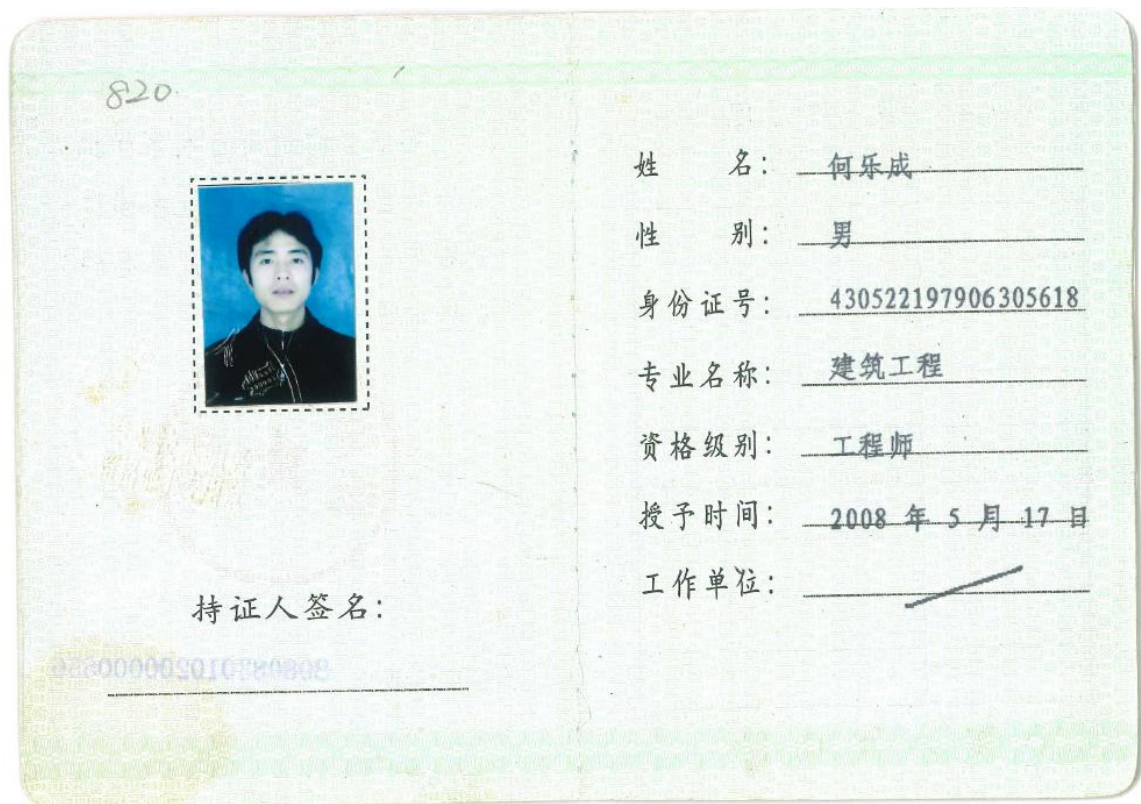 820
姓名：何乐成
性别：男
身份证号：430522197906305618
专业名称：建筑工程
资格级别：工程师
授予时间：2008 年 5 月 17 日
工作单位：
持证人签名：